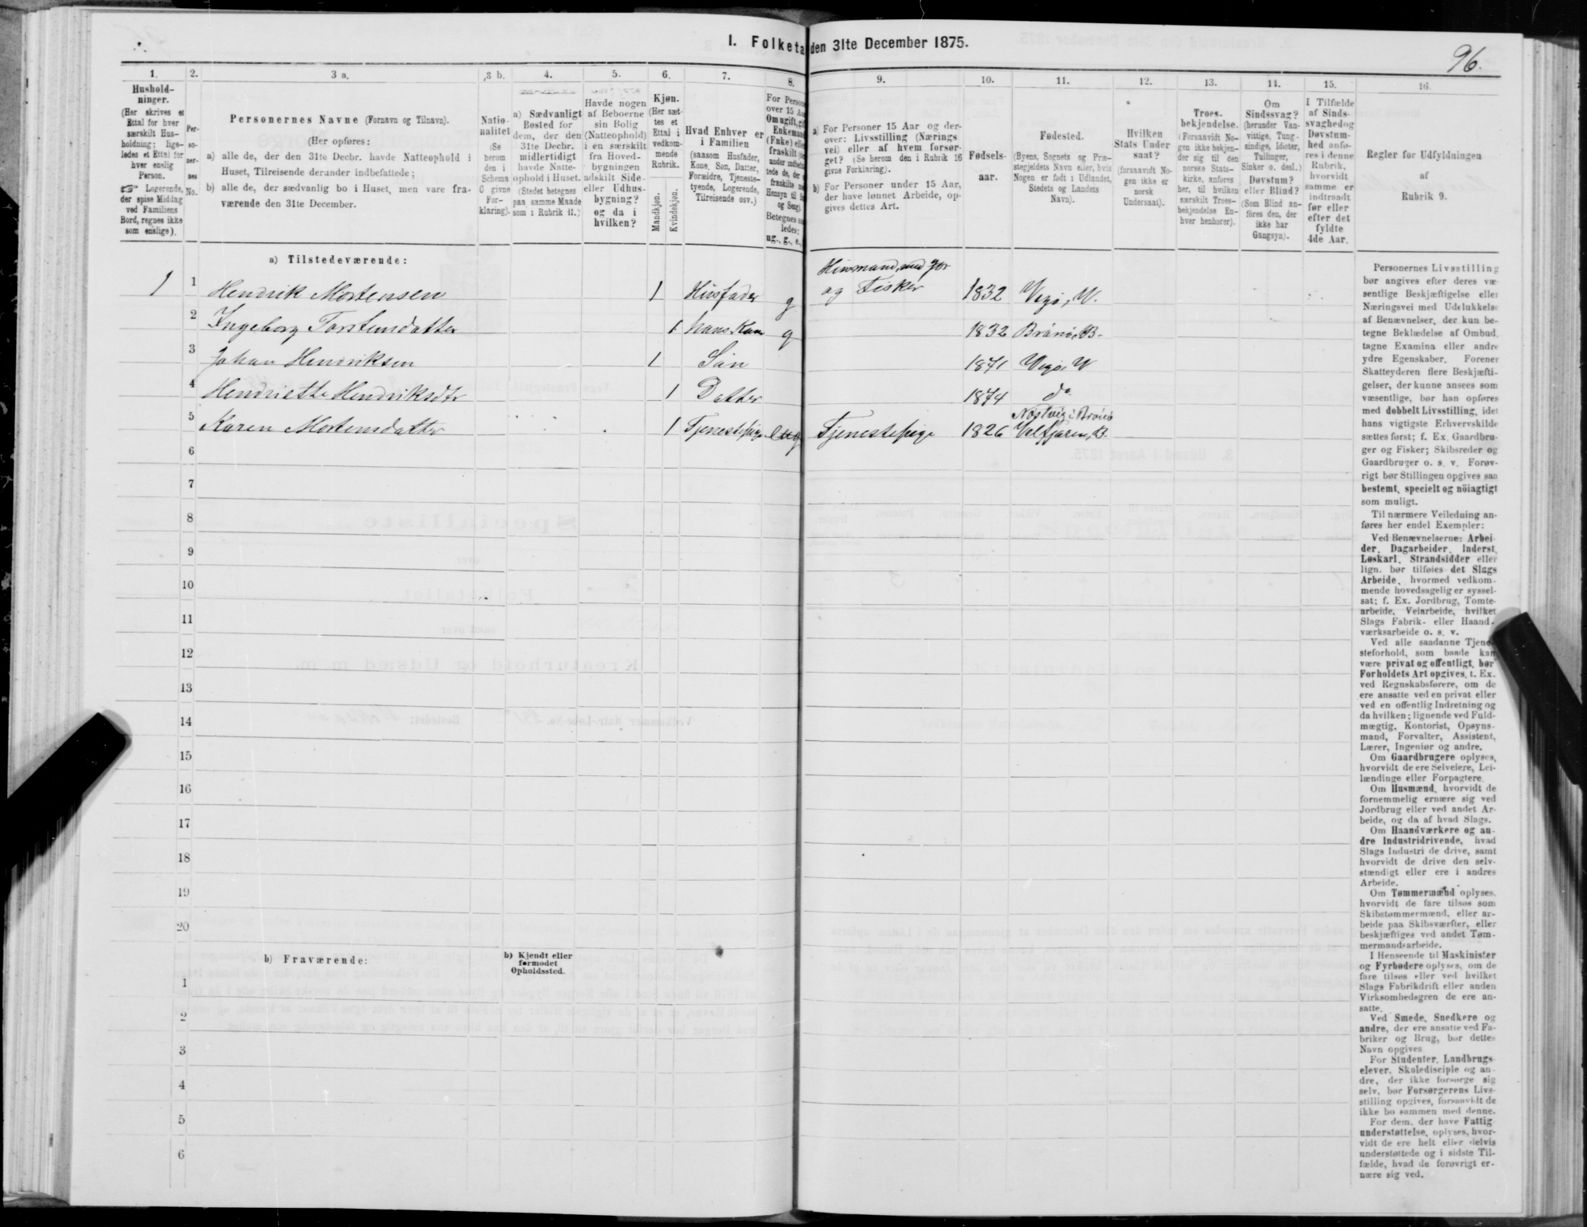 I. Folketa den 31te December 1875.
96.
1. 2. 3 a. 3 b. 4. 5. 6. 7. 8. 9. 10. 11. 12. 13. 14. 15. 16.
Hushold-
ninger.
(Her skrives et
Ettal for hver
særskilt Hus-
holdning; lige-
ledes et Ettal for
hver enslig
Person.
Logerende,
der spise Middag
ved Familiens
Bord, regnes ikke
som enslige).
Per-
so-
ner-
nes
No.
Personernes Navne (Fornavn og Tilnavn).
(Her opføres:
a) alle de, der den 31te Decbr. havde Natteophold i
Huset, Tilreisende derunder indbefattede;
b) alle de, der sædvanlig bo i Huset, men vare fra-
værende den 31te December.
Natio-
nalitet
(Se
herom
den i
Schema
C givne
For-
klaring).
a) Sædvanligt
Bosted for
dem, der den
31te Decbr.
midlertidigt
havde Natte-
ophold i Huset.
(Stedet betegnes
paa samme Maade
som i Rubrik 11.)
Havde nogen
af Beboerne
sin Bolig
(Natteophold)
i en særskilt
fra Hoved-
bygningen
afskilt Side-
eller Udhus-
bygning?
og da i
hvilken?
Kjøn.
(Her sæt-
tes et
Ettal i
vedkom-
mende
Rubrik.
Mandkjøn.
Kvindekjøn.
Hvad Enhver er
i Familien
(saasom Husfader,
Kone, Søn, Datter,
Forældre, Tjeneste-
tyende, Logerende,
Tilreisende osv.)
For Persone
over 15 Aa
Om ugift, gif
Enkemand
(Enke) elle
fraskilt
Betegnes saa
ledes:
ug., g., e.,
a) For Personer 15 Aar og der-
over: Livsstilling (Nærings
vei) eller af hvem forsør-
get? (Se herom den i Rubrik 16
givne Forklaring).
b) For Personer under 15 Aar,
der have lønnet Arbeide, op-
gives dettes Art.
Fødsels-
aar.
Fødested.
(Byens, Sognets og Præ-
stegjeldets Navn eller, hvis
Nogen er født i Udlandet,
Stedets og Landets
Navn).
Hvilken
Stats Under
saat?
(foraavidt No-
gen ikke er
norsk
Undersaat).
Troes-
bekjendelse.
(Forsaavidt No-
gen ikke bekjen-
der sig til den
norske Stats-
kirke, anføres
her, til hvilken
særskilt Troes-
bekjendelse En-
hver henhører).
Om
Sindssvag?
(herunder Van-
vittige, Tung-
sindige, Idioter,
Tullinger,
Sinker o. desl.)
Døvstum?
eller Blind?
(Som Blind an-
føres den, der
ikke har
Gangsyn).
I Tilfælde
af Sinds-
svaghed og
Døvstum-
hed anfø-
res i denne
Rubrik,
hvorvidt
samme er
indtraadt
før eller
efter det
fyldte
4de Aar.
Regler for Udfyldningen
af
Rubrik 9.
a) Tilstedeværende:
1 1 Hendrik Mortensen 1 Husfader g Husmand med Jor og Fisker 1832 Vegø, W.
2 Ingeborg Torstensdatter 1 hans Kone g 1832 Brönø, B.
3 Johan Hendriksen 1 Sön 1871 Vegø W
4 Hendriette Hendriksdtr 1 Datter 1874 do
5 Karen Mortensdatter 1 Tjenestepige ug Tjenestepige 1826 Velfjoren, B.
6
7
8
9
10
11
12
13
14
15
16
17
18
19
20
b) Fraværende:
b) Kjendt eller
formodet
Opholdssted.
1
2
3
4
5
6
Personernes Livsstilling
bør angives efter deres væ-
sentlige Beskjæftigelse eller
Næringsvei med Udelukkelse
af Benævnelser, der kun be-
tegne Beklædelse af Ombud,
tagne Examina eller andre
ydre Egenskaber. Forener
Skatteyderen flere Beskjæfti-
gelser, der kunne ansees som
væsentlige, bør han opføres
med dobbelt Livsstilling, idet
hans vigtigste Erhvervskilde
sættes først; f. Ex. Gaardbru-
ger og Fisker; Skibsreder og
Gaardbruger o. s. v. Forøv-
rigt bør Stillingen opgives saa
bestemt, specielt og nöiagtigt
som muligt.
Til nærmere Veiledning an-
føres her endel Exempler:
Ved Benævnelserne: Arbei-
der, Dagarbeider, Inderst,
Løskarl, Strandsidder eller
lign. bør tilføies det Slags
Arbeide, hvormed vedkom-
mende hovedsagelig er syssel-
sat; f. Ex. Jordbrug, Tomte-
arbeide, Veiarbeide, hvilket
Slags Fabrik- eller Haand-
værksarbeide o. s. v.
Ved alle saadanne Tjene-
steforhold, som baade kan
være privat og offentligt, bør
Forholdets Art opgives, t. Ex.
ved Regnskabsførere, om de
ere ansatte ved en privat eller
ved en offentlig Indretning og
da hvilken; lignende ved Fuld-
mægtig, Kontorist, Opsyns-
mand, Forvalter, Assistent,
Lærer, Ingeniør og andre.
Om Gaardbrugere oplyses,
hvorvidt de ere Selveiere, Lei-
lændinge eller Forpagtere.
Om Husmænd, hvorvidt de
fornemmelig ernære sig ved
Jordbrug eller ved andet Ar-
beide, og da af hvad Slags.
Om Haandværkere og an-
dre Industridrivende, hvad
Slags Industri de drive, samt
hvorvidt de drive den selv-
stændigt eller ere i andres
Arbeide.
Om Tømmermænd oplyses,
hvorvidt de fare tilsøs som
Skibstømmermænd, eller ar-
beide paa Skibsværfter, eller
beskjæftiges ved andet Tøm-
mermandsarbeide.
I Henseende til Maskinister
og Fyrbødere oplyses, om de
fare tilsøs eller ved hvilket
Slags Fabrikdrift eller anden
Virksomhedsgren de ere an-
satte.
Ved Smede, Snedkere og
andre, der ere ansatte ved Fa-
briker og Brug, bør dettes
Navn opgives
For Studenter, Landbrugs-
elever, Skoledisciple og an-
dre, der ikke forsørge sig
selv, bør Forsørgerens Livs-
stilling opgives, forsaavidt de
ikke bo sammen med denne.
For dem, der have Fattig-
understøttelse, oplyses, hvor-
vidt de ere helt eller delvis
understøttede og i sidste Til-
fælde, hvad de forøvrigt er-
nære sig ved.